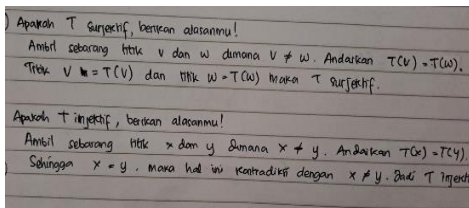 ) Apakah T surjektif, berikan alasanmu!
Ambil sebarang titik v dan w dimana v ≠ w. Andaikan T(v) = T(w).
Titik v = T(v) dan titik w = T(w) maka T surjektif.
Apakah T injektif, berikan alasanmu!
Ambil sebarang titik x dan y dimana x ≠ y. Andaikan T(x) = T(y).
Sehingga x = y. maka hal ini kontradiksi dengan x ≠ y. Jadi T injekti